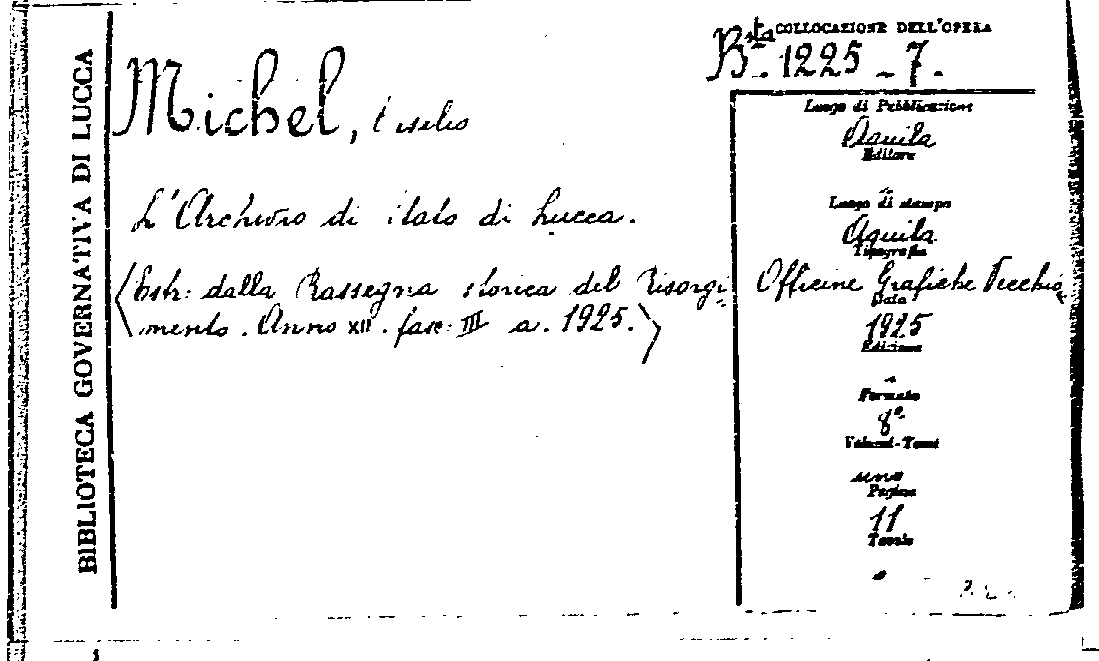 BIBLIOTECA GOVERNATIVA DI LUCCA
COLLOCAZIONE DELL'OPERA
B.ta 1225 - 7.
Michel, Ersilio
L'Archivio di stato di Lucca.
(Estr: dalla Rassegna storica del Risorgi
mento. Anno XII. fasc: III a. 1925.)
Luogo di Pubblicazione
Aquila
Editore
"
Luogo di stampa
Aquila
Tipografia
Officine Grafiche Vecchioni
Data
1925
Edizione
-
Formato
8°
Volumi-Tomi
uno
Pagine
11
Tavole